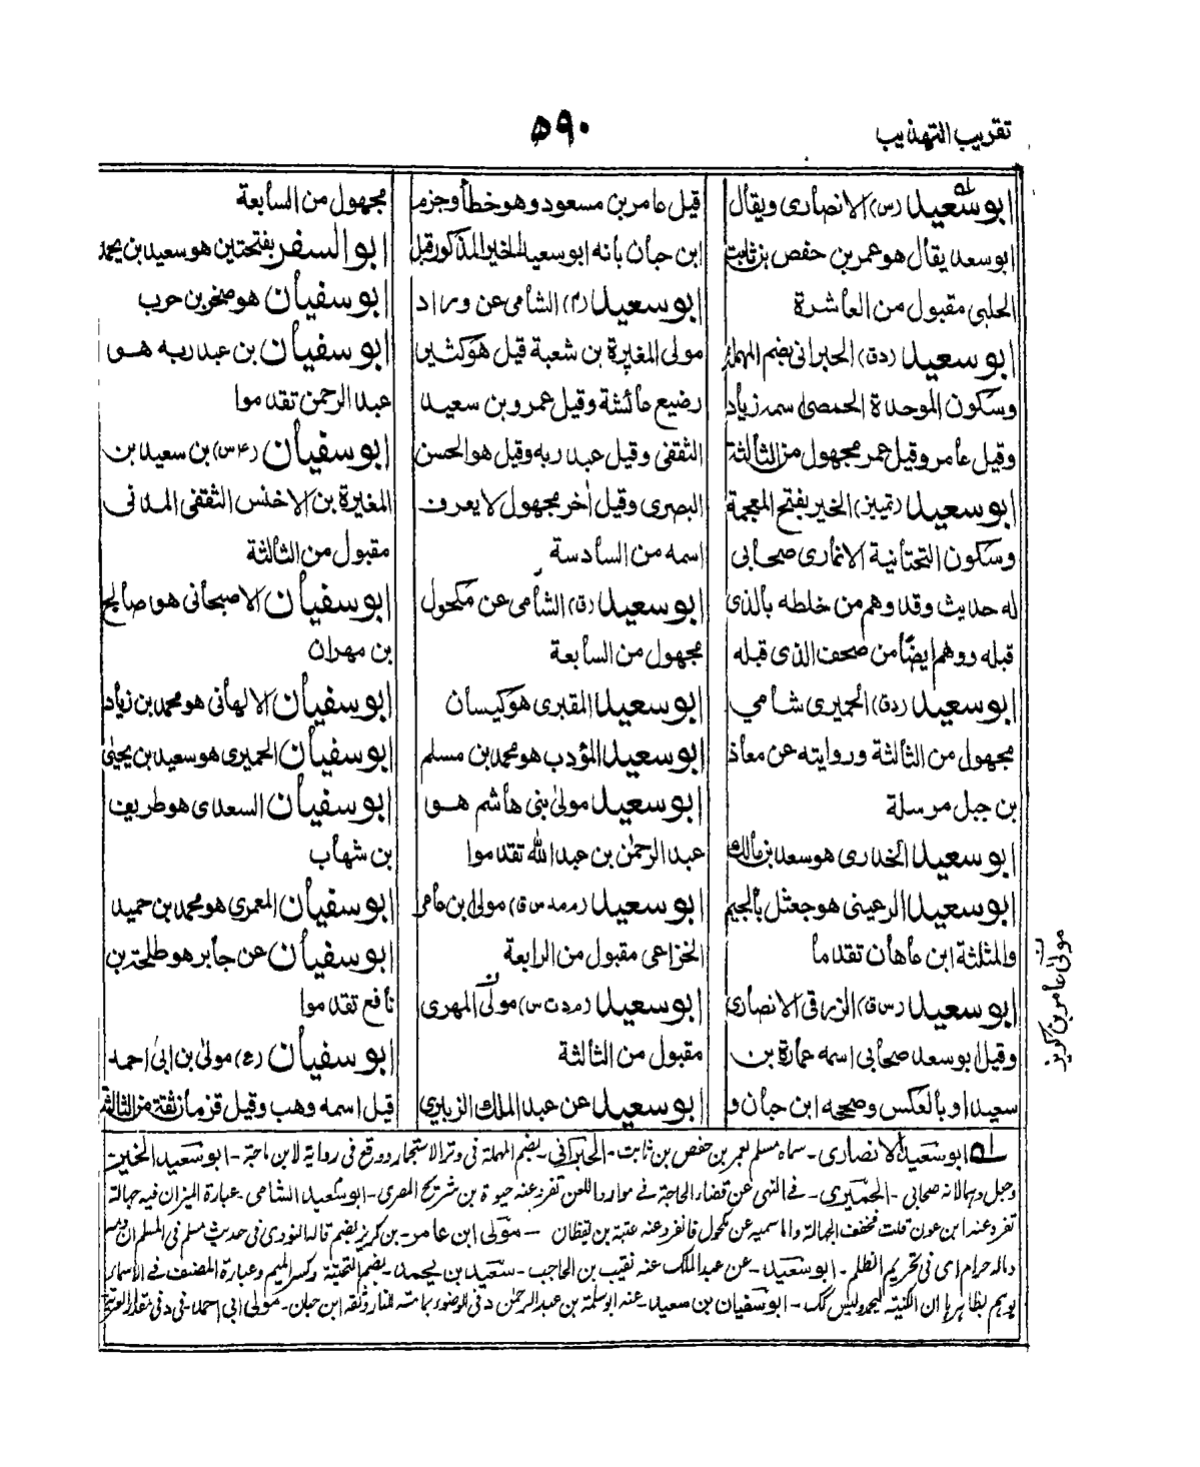 تقريب التهذيب
٥٩٠
ابو سعيد (س) الانصارى ويقال
ابوسعد يقال هو عمر بن حفص بن ثابت
الحلبى مقبول من العاشرة
ابو سعيد (دق) الحبرانى بضم المهملة
وسكون الموحدة الحمصى اسمه زياد
وقيل عامر وقيل عمر مجهول من الثالثة
ابو سعيد (تمييز) الخير بفتح المعجمة
وسكون التحتانية الانمارى صحابى
له حديث وقد وهم من خلطه بالذى
قبله ووهم ايضا من صحف الذى قبله
ابو سعيد (دق) الحميرى شامي
مجهول من الثالثة وروايته عن معاذ
بن جبل مرسلة
ابو سعيد الخدرى هو سعد بن مالك
ابو سعيد الرعينى هو جعثل بالجيم
والمثلثة ابن ماهان تقدما
ابو سعيد (س ق) الزرقى الانصارى
وقيل ابوسعد صحابى اسمه عمارة بن
سعيد او بالعكس وصححه ابن حبان و
قيل عامر بن مسعود وهو خطأ وجزم
ابن حبان بانه ابوسعيد الخير المذكور قبل
ابو سعيد (م) الشامى عن وراد
مولى المغيرة بن شعبة قيل هو كثير
رضيع عائشة وقيل عمرو بن سعيد
الثقفى وقيل عبد ربه وقيل هو الحسن
البصرى وقيل اخر مجهول لا يعرف
اسمه من السادسة
ابو سعيد (ق) الشامى عن مكحول
مجهول من السابعة
ابو سعيد المقبرى هو كيسان
ابو سعيد المؤدب هو محمد بن مسلم
ابو سعيد مولى بنى هاشم هو
عبد الرحمن بن عبد الله تقدموا
ابو سعيد (م مد س ق) مولى ابن عامر
الخزاعى مقبول من الرابعة
ابو سعيد (م د ت س) مولى المهرى
مقبول من الثالثة
ابو سعيد عن عبد الملك الزبيرى
مجهول من السابعة
ابو السفر بفتحتين هو سعيد بن يحمد
ابو سفيان هو صخر بن حرب
ابو سفيان بن عبد ربه هو
عبد الرحمن تقدموا
ابو سفيان بن سعيد بن
المغيرة بن الاخنس الثقفى المدنى
مقبول من الثالثة
ابو سفيان الاصبحانى هو صالح
بن مهران
ابو سفيان الالهانى هو محمد بن زياد
ابو سفيان الحميرى هو سعيد بن يحيى
ابو سفيان السعدى هو طريف
بن شهاب
ابو سفيان المعمرى هو محمد بن حميد
ابو سفيان عن جابر هو طلحة بن
نافع تقدموا
ابو سفيان (ع) مولى بن ابى احمد
قيل اسمه وهب وقيل قزمان ثقة من الثالثة
مولى عامر بن كريز
ابو سعيد الانصارى ـ سماه مسلم عمر بن حفص بن ثابت ـ الحبرانى ـ بضم المهملة فى وتر الاستجمار ووقع فى رواية لابن ماجة ـ ابو سعيد الخير
صحابى ـ الحميرى ـ فى النهى عن قضاء الحاجة فى موارد تفرد عنه حيوة بن شريح المصرى ـ ابو سعيد الشامى ـ عبارة الميزان فيه جهالة
تفرد عنه ابن عون قلت عن مكحول عنه عتبة بن يقظان ـ مولى ابن عامر ـ بن كريز بضم قاله النووى فى حديث مسلم فى المسلم
وماله حرام اى فى تحريم الظلم ـ ابو سعيد ـ عن عبد الملك عنه نقيب بن الحاجب ـ سعيد بن يحمد ـ بضم التحتية وكسر الميم وعبارة المصنف فى الاسماء
ان الكنية ـ ابو سفيان بن سعيد ـ عنه ابو سلمة بن عبد الرحمن فى الوضوء مما مسته النار وثقه ابن حبان ـ مولى ابى احمد